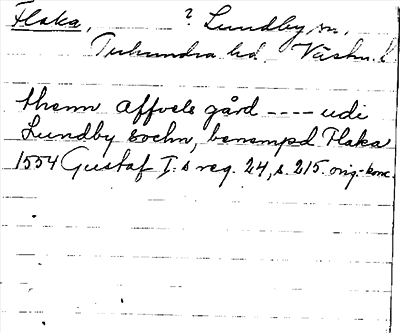 Flaka, ? Lundby sn,
Tuhundra hd. Västm. l.
thenn affvels gård ---- udi
Lundby sochn, benempd Flaka
1554 Gustaf I:s reg. 24, s. 215. orig.-konc.